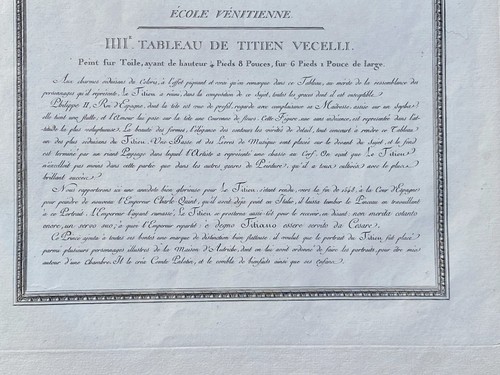 ÉCOLE VÉNITIENNE.
IIIIᵉ. TABLEAU DE TITIEN VECELLI.
Peint sur Toile, ayant de hauteur 4 Pieds 8 Pouces, sur 6 Pieds 1 Pouce de large.
Aux charmes séduisans du Coloris, à l'effet piquant et vrai qu'on remarque dans ce Tableau, au mérite de la ressemblance des
personnages qu'il représente, Le Titien a réuni, dans la composition de ce Sujet, toutes les graces dont il est susceptible.
Philippe II, Roi d'Espagne, dont la tête est vue de profil, regarde avec complaisance sa Maitresse assise sur un sopha;
elle tient une flutte, et l'Amour lui pose sur la tête une Couronne de fleurs. Cette Figure, nue sans indécence, est représentée dans l'at-
titude la plus voluptueuse. La beauté des formes, l'élégance des contours, les vérités de détail, tout concourt à rendre ce Tableau
un des plus séduisans du Titien. Une Basse et des Livres de Musique sont placés sur le devant du Sujet, et le fond
est terminé par un riant Paysage dans lequel l'Artiste a représenté une chasse au Cerf. On sait que Le Titien
n'excelloit pas moins dans cette partie que dans les autres genres de Peinture, qu'il a tous cultivés avec le plus
brillant succès.
Nous rapporterons ici une anecdote bien glorieuse pour Le Titien. S'étant rendu, vers la fin de 1548, à la Cour d'Espagne
pour peindre de nouveau l'Empereur Charle Quint, qu'il avoit déja peint en Italie, il laissa tomber le Pinceau en travaillant
à ce Portrait. L'Empereur l'ayant ramassé, Le Titien se prosterna aussi-tôt pour le recevoir, en disant: non merita cotanto
onore, un servo suo; à quoi l'Empereur repartit: è degno Titiano essere servito da Cesare.
Ce Prince ajouta à toutes ses bontés une marque de distinction bien flatteuse: il voulut que le portrait du Titien fût placé
parmi plusieurs personnages illustres de la Maison d'Autriche, dont on lui avoit ordonné de faire les portraits, pour être mis
autour d'une Chambre. Il le créa Comte Palatin, et le combla de bienfaits ainsi que ses Enfans.